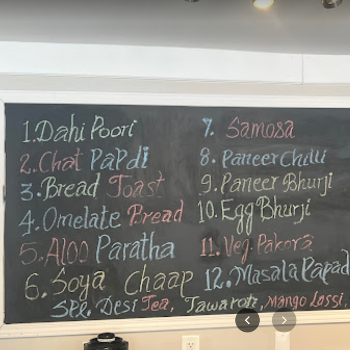 1. Dahi Poori
2. Chat Papdi
3. Bread Toast
4. Omelate Bread
5. Aloo Paratha
6. Soya Chaap
7. Samosa
8. Paneer Chilli
9. Paneer Bhurji
10. Egg Bhurji
11. Veg. Pakora
12. Masala Papad
Spe. Desi Tea, Tawa roti, Mango Lassi,